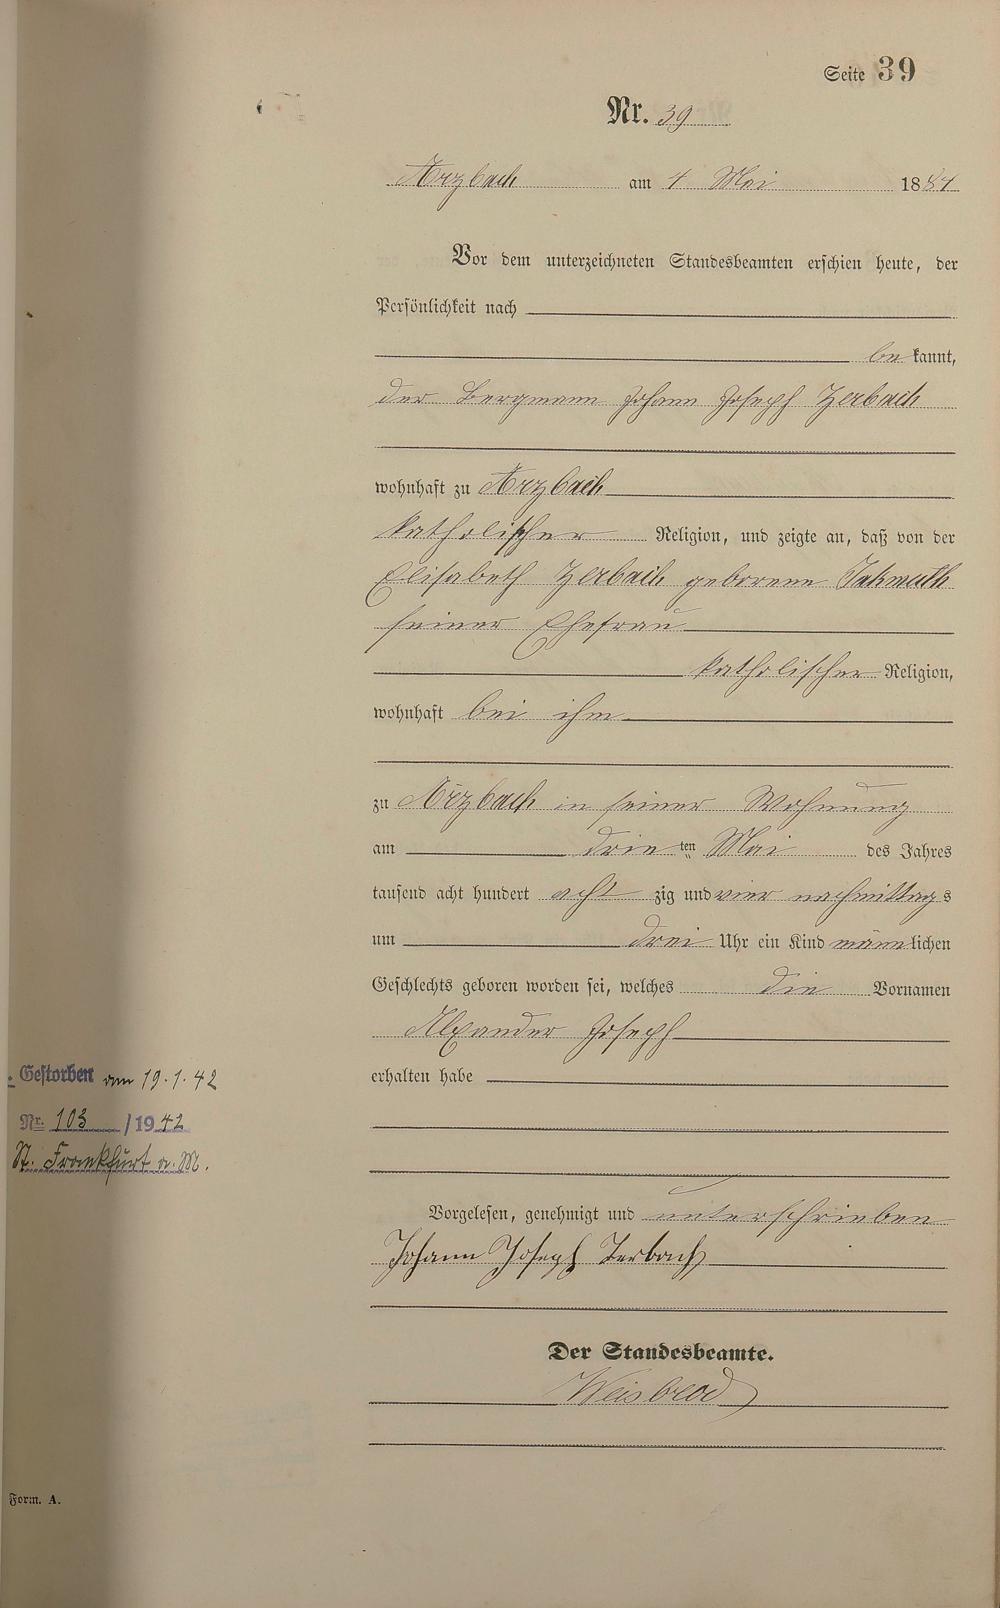 Seite 39
Nr. 39
Arzbach am 4 Mai 1884
Vor dem unterzeichneten Standesbeamten erschien heute, der
Persönlichkeit nach
bekannt,
der Bergmann Johann Joseph Zerbach
wohnhaft zu Arzbach
katholischer Religion, und zeigte an, daß von der
Elisabeth Zerbach geborene
seiner Ehefrau
katholischer Religion,
wohnhaft bei ihm
zu Arzbach in seiner Wohnung
am drieten Mai des Jahres
tausend acht hundert achtzig und vier nachmittags
um drei Uhr ein Kind männlichen
Geschlechts geboren worden sei, welches die Vornamen
Alexander Joseph
erhalten habe
Gestorben am 19.1.42
Nr. 103 /1942
St. Frankfurt a. M.
Vorgelesen, genehmigt und unterschrieben
Johann Joseph Zerbach
Der Standesbeamte.
Weisbrod
Form. A.